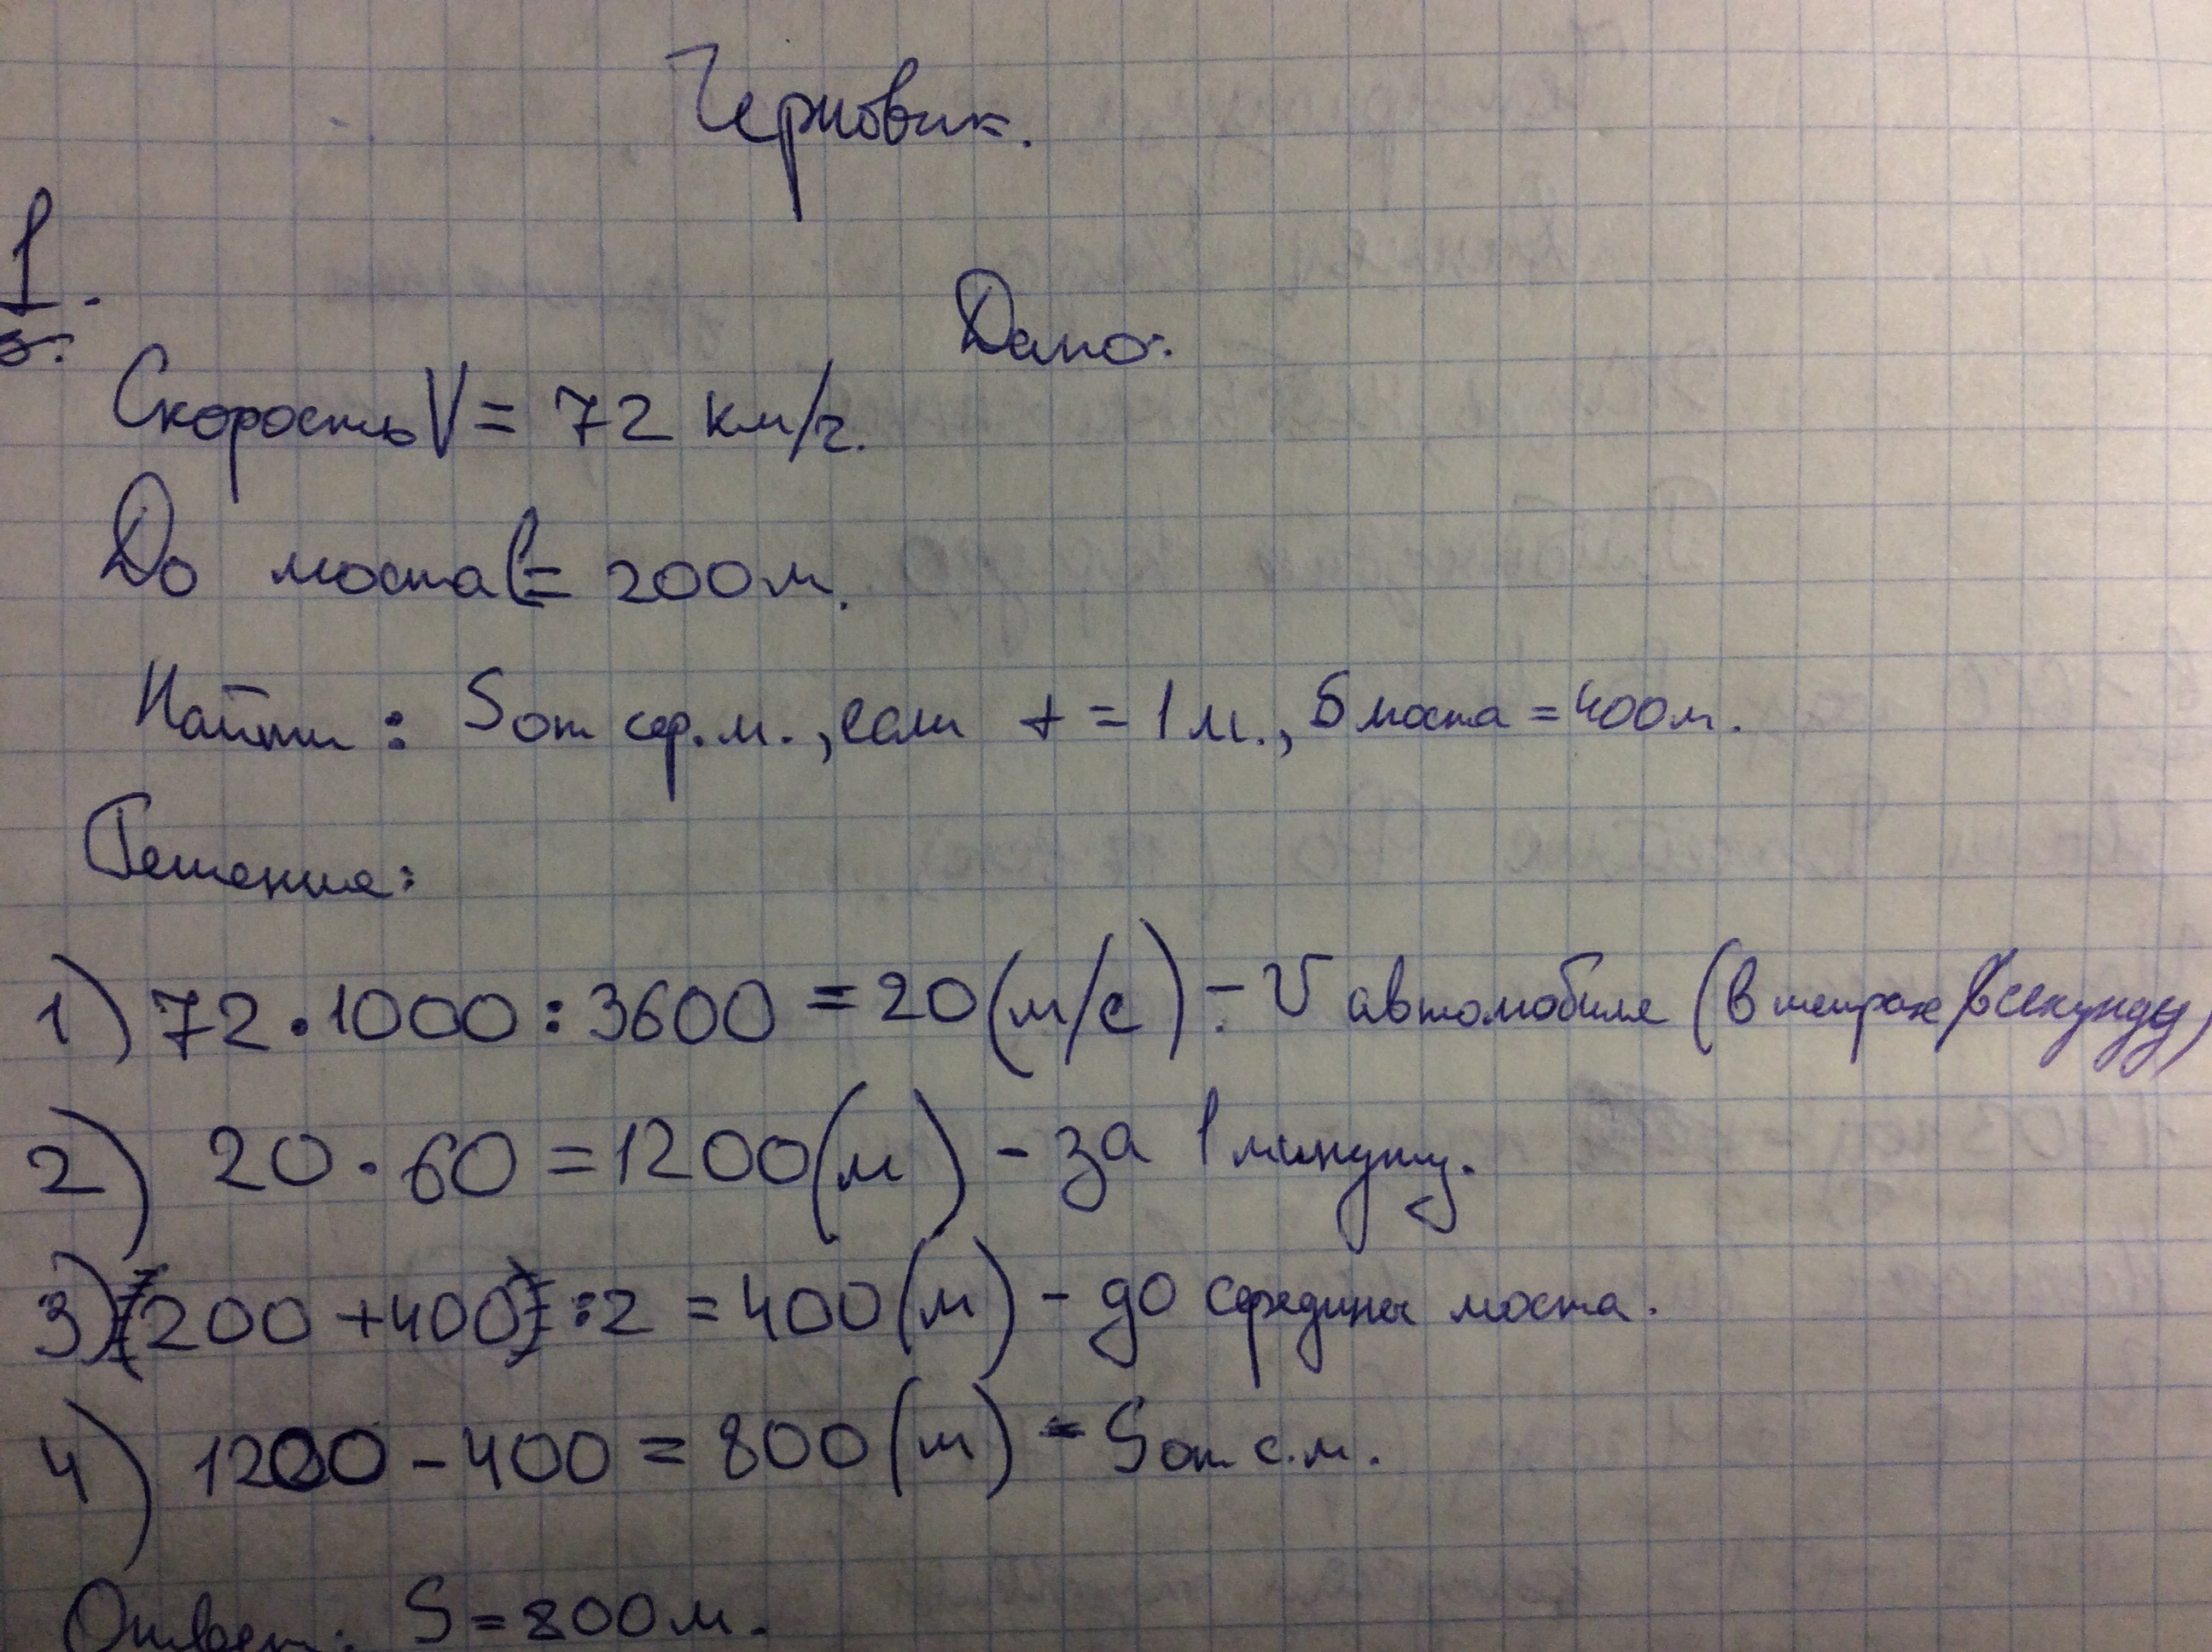 Черновик.
1.
Дано:
з.
Скорость V = 72 км/ч.
До моста l = 200м.
Найти : S от сер. м., если t = 1 м., S моста = 400м.
Решение:
1) 72 · 1000 : 3600 = 20 (м/с) - V автомобиля (в метрах/в секунду)
2) 20 · 60 = 1200 (м) - за 1 минуту.
3) 200 + 400 : 2 = 400 (м) - до середины моста.
4) 1200 - 400 = 800 (м) - S от с.м.
Ответ: S = 800м.